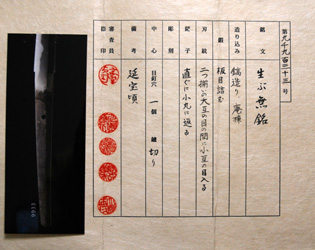 第九千九百二十三号
銘文 生ぶ無銘
造り込み 鎬造り 庵棟
鍛 板目詰む
刃紋 二つ揃ふ大互の目の間に小互の目入る
鋩子 直ぐに小丸に返る
彫刻
中心 目釘穴 一個 鑢 切り
備考 延宝頃
審査員
捺印
9923